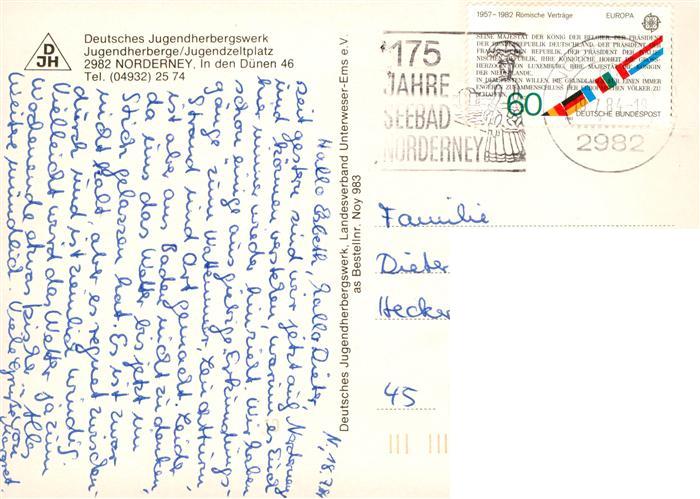 Deutsches Jugendherbergswerk
Jugendherberge/Jugendzeltplatz
2982 NORDERNEY, In den Dünen 46
Tel. (04932) 25 74
DJH
N, 18.7.84
Hallo Elsbeth, hallo Dieter,
seit gestern sind wir jetzt auf Norderney
und können verstehen, warum es Euch
hier immer wieder hinzieht. Wir haben
auch einige ausgiebige Erkundungs-
gänge zum Wattenmeer, Leuchtturm,
Strand und Ort gemacht. Leider
ist aber ans Baden nicht zu denken,
da uns das Wetter bis jetzt im
Stich gelassen hat. Es ist zwar
nicht kalt, aber es regnet zwischen-
durch und ist ziemlich windig.
Vielleicht wird das Wetter ja zum
Wochenende etwas besser. Alles
Weitere mündlich. Viele Grüße von
Margret
Deutsches Jugendherbergswerk, Landesverband Unterweser-Ems e.V.
as Bestellnr. Noy 983
1957–1982 Römische Verträge EUROPA
SEINE MAJESTÄT DER KÖNIG DER BELGIER, DER PRÄSIDENT
DER BUNDESREPUBLIK DEUTSCHLAND, DER PRÄSIDENT DER
FRANZÖSISCHEN REPUBLIK, DER PRÄSIDENT DER ITALIE-
NISCHEN REPUBLIK, IHRE KÖNIGLICHE HOHEIT DIE GROSS-
HERZOGIN VON LUXEMBURG, IHRE MAJESTÄT DIE KÖNIGIN
DER NIEDERLANDE,
IN DEM FESTEN WILLEN, DIE GRUNDLAGEN FÜR EINEN IMMER
ENGEREN ZUSAMMENSCHLUSS DER EUROPÄISCHEN VÖLKER ZU
SCHAFFEN
60
DEUTSCHE BUNDESPOST
175
JAHRE
SEEBAD
NORDERNEY
7.84-18
2982
Familie
Dieter
Hecker
45